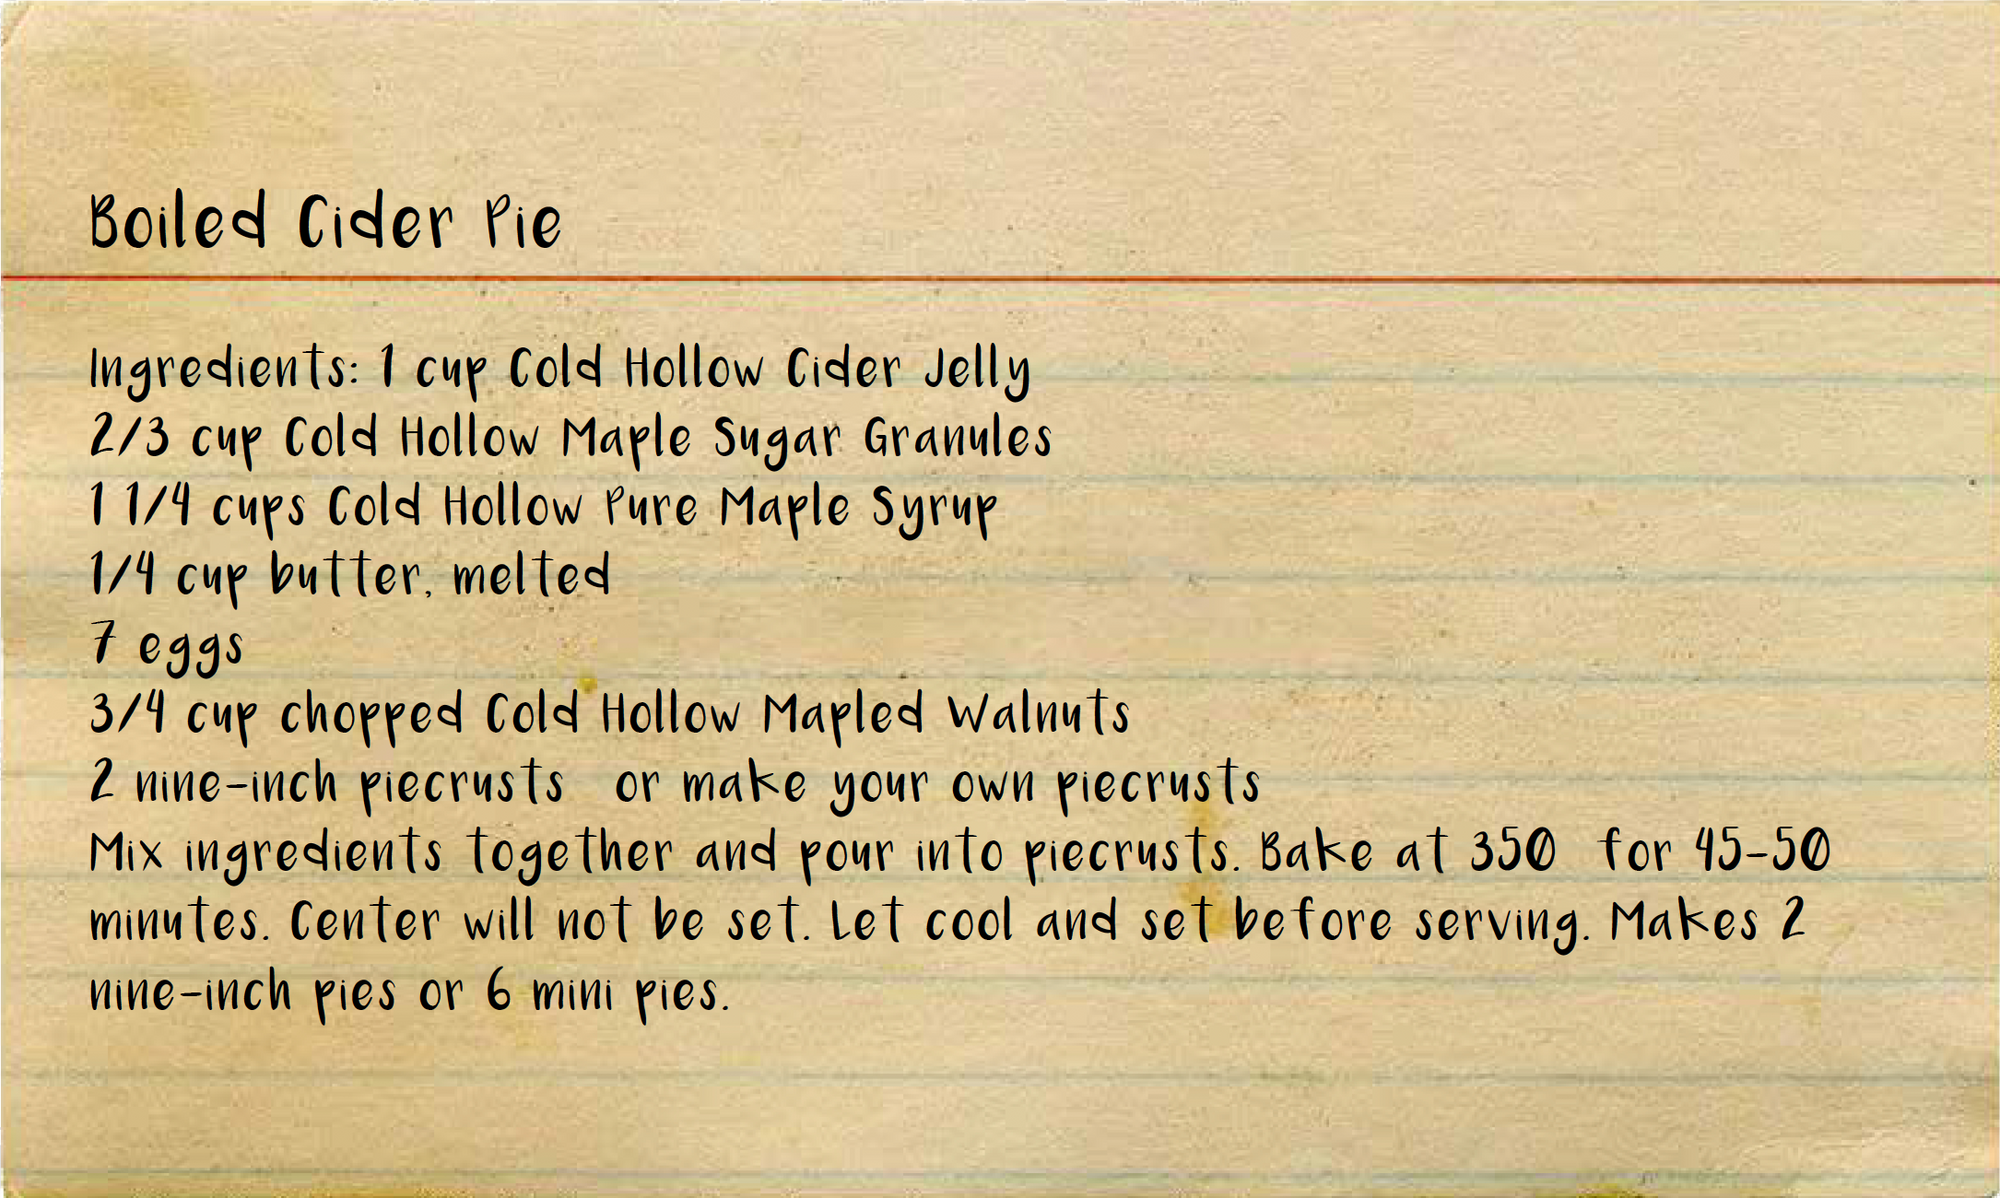 Boiled Cider Pie
Ingredients: 1 cup Cold Hollow Cider Jelly
2/3 cup Cold Hollow Maple Sugar Granules
1 1/4 cups Cold Hollow Pure Maple Syrup
1/4 cup butter, melted
7 eggs
3/4 cup chopped Cold Hollow Mapled Walnuts
2 nine-inch piecrusts or make your own piecrusts
Mix ingredients together and pour into piecrusts. Bake at 350 for 45-50
minutes. Center will not be set. Let cool and set before serving. Makes 2
nine-inch pies or 6 mini pies.